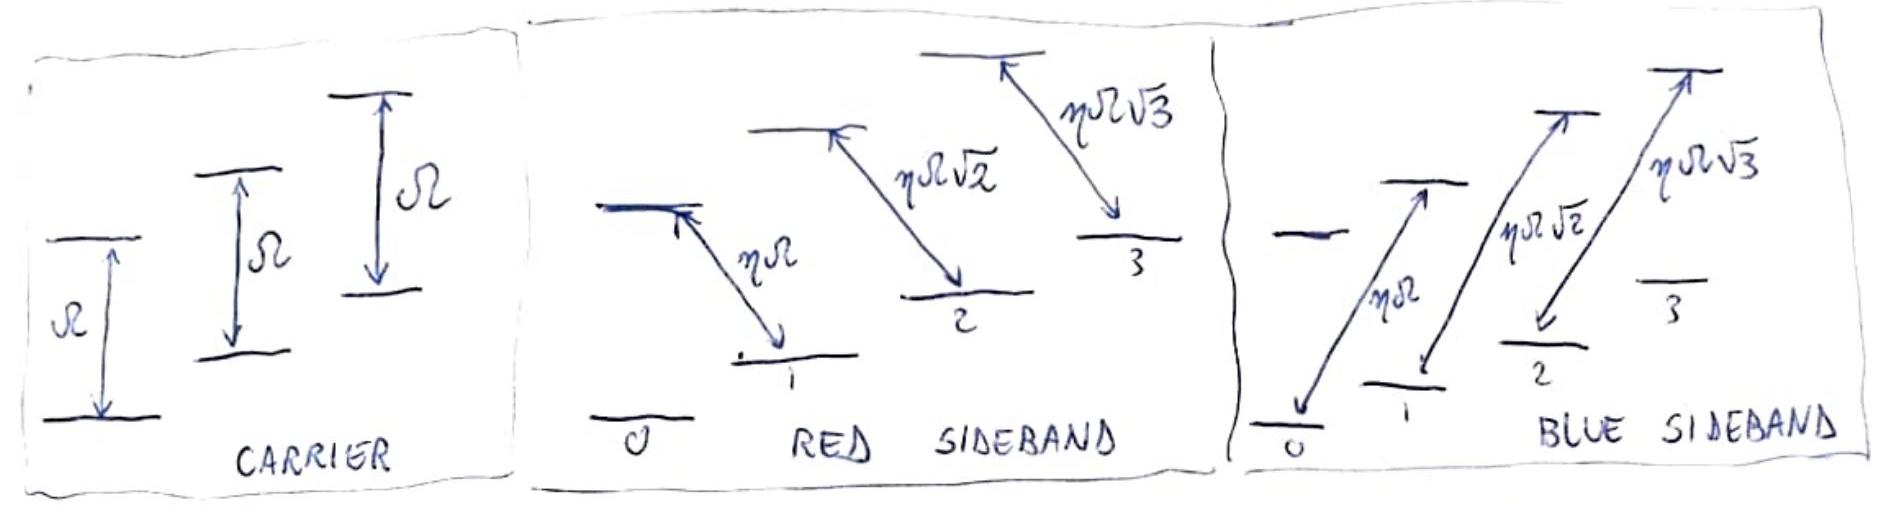 Ω
Ω
Ω
CARRIER
ηΩ
ηΩ√2
ηΩ√3
0
1
2
3
RED SIDEBAND
ηΩ
ηΩ√2
ηΩ√3
0
1
2
3
BLUE SIDEBAND